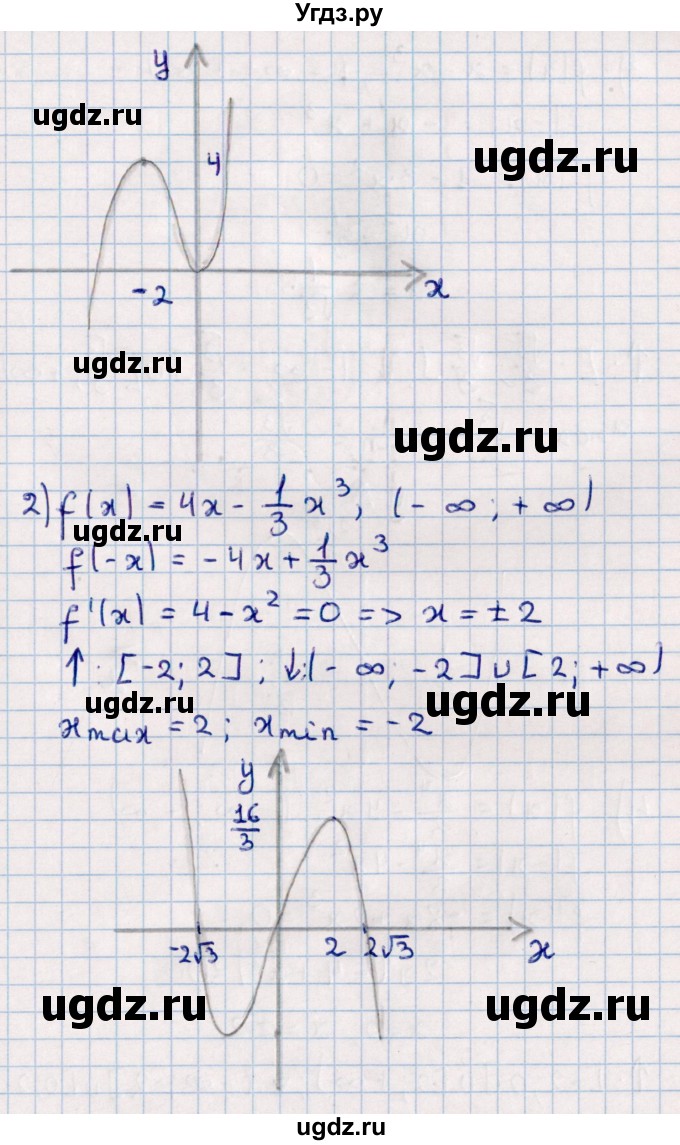 Угдз.ру
y
ugdz.ru
ugdz.ru
4
-2
x
ugdz.ru
ugdz.ru
2) f(x) = 4x - 1/3 x³, (-∞; +∞)
ugdz.ru
f(-x) = -4x + 1/3 x³
f'(x) = 4 - x² = 0 => x = ±2
↑: [-2; 2]; ↓: (-∞; -2] ∪ [2; +∞)
ugdz.ru
ugdz.ru
xmax = 2; xmin = -2
y
16/3
-2√3 2 2√3 x
ugdz.ru
ugdz.ru
ugdz.ru